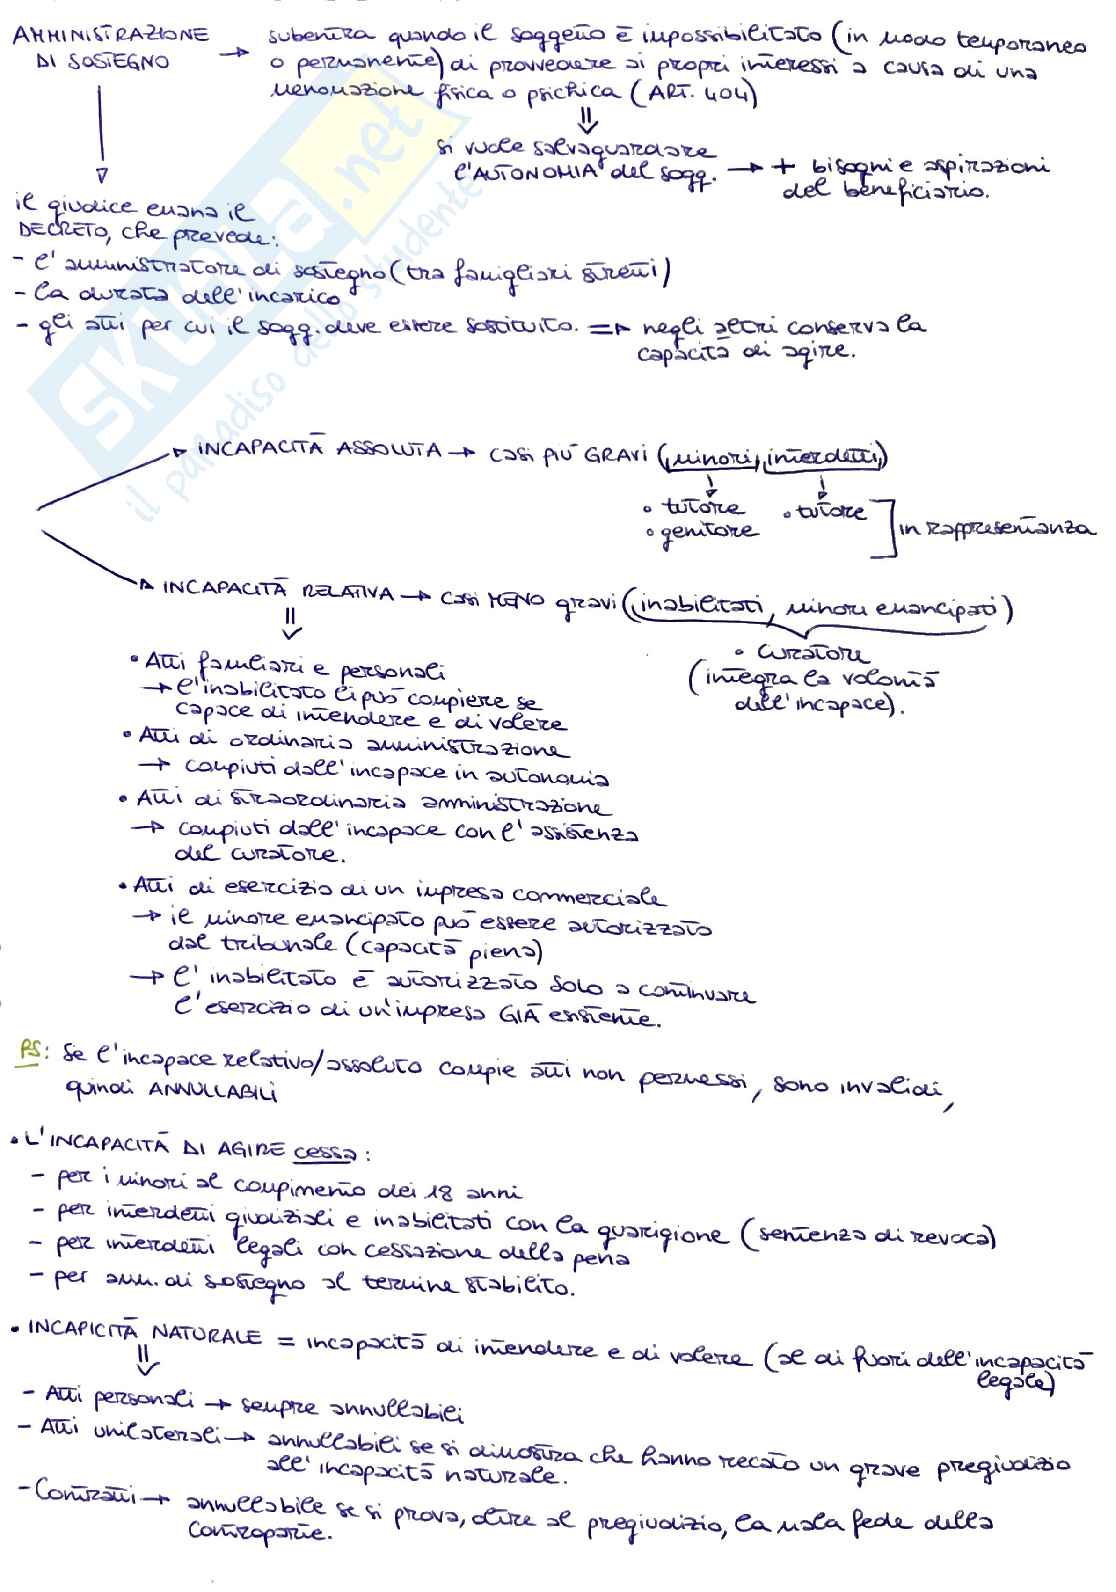 AMMINISTRAZIONE DI SOSTEGNO → subentra quando il soggetto è impossibilitato (in modo temporaneo
o permanente) di provvedere ai propri interessi a causa di una
menomazione fisica o psichica (ART. 404)
si vuole salvaguardare
l'AUTONOMIA del sogg. → + bisogni e aspirazioni
del beneficiario.
il giudice emana il
DECRETO, che prevede:
- l'amministratore di sostegno (tra famigliari stretti)
- la durata dell'incarico
- gli atti per cui il sogg. deve essere sostituito. => negli altri conserva la
capacità di agire.
SKUOLA.net
il paradiso dello studente
INCAPACITÀ ASSOLUTA → casi più GRAVI (minori, interdetti)
• tutore • tutore
• genitore
in rappresentanza
INCAPACITÀ RELATIVA → casi MENO gravi (inabilitati, minori emancipati)
• curatore
(integra la volontà
dell'incapace).
• Atti familiari e personali
→ l'inabilitato li può compiere se
capace di intendere e di volere
• Atti di ordinaria amministrazione
→ compiuti dall'incapace in autonomia
• Atti di straordinaria amministrazione
→ compiuti dall'incapace con l'assistenza
del curatore.
• Atti di esercizio di un impresa commerciale
→ il minore emancipato può essere autorizzato
dal tribunale (capacità piena)
→ l'inabilitato è autorizzato solo a continuare
l'esercizio di un'impresa GIÀ esistente.
PS: Se l'incapace relativo/assoluto compie atti non permessi, sono invalidi,
quindi ANNULLABILI
• L'INCAPACITÀ DI AGIRE cessa:
- per i minori al compimento dei 18 anni
- per interdetti giudiziali e inabilitati con la guarigione (sentenza di revoca)
- per interdetti legali con cessazione della pena
- per amm. di sostegno al termine stabilito.
• INCAPICITÀ NATURALE = incapacità di intendere e di volere (al di fuori dell'incapacità
legale)
- Atti personali → sempre annullabili
- Atti unilaterali → annullabili se si dimostra che hanno recato un grave pregiudizio
all'incapacità naturale.
- Contratti → annullabile se si prova, oltre al pregiudizio, la mala fede della
controparte.